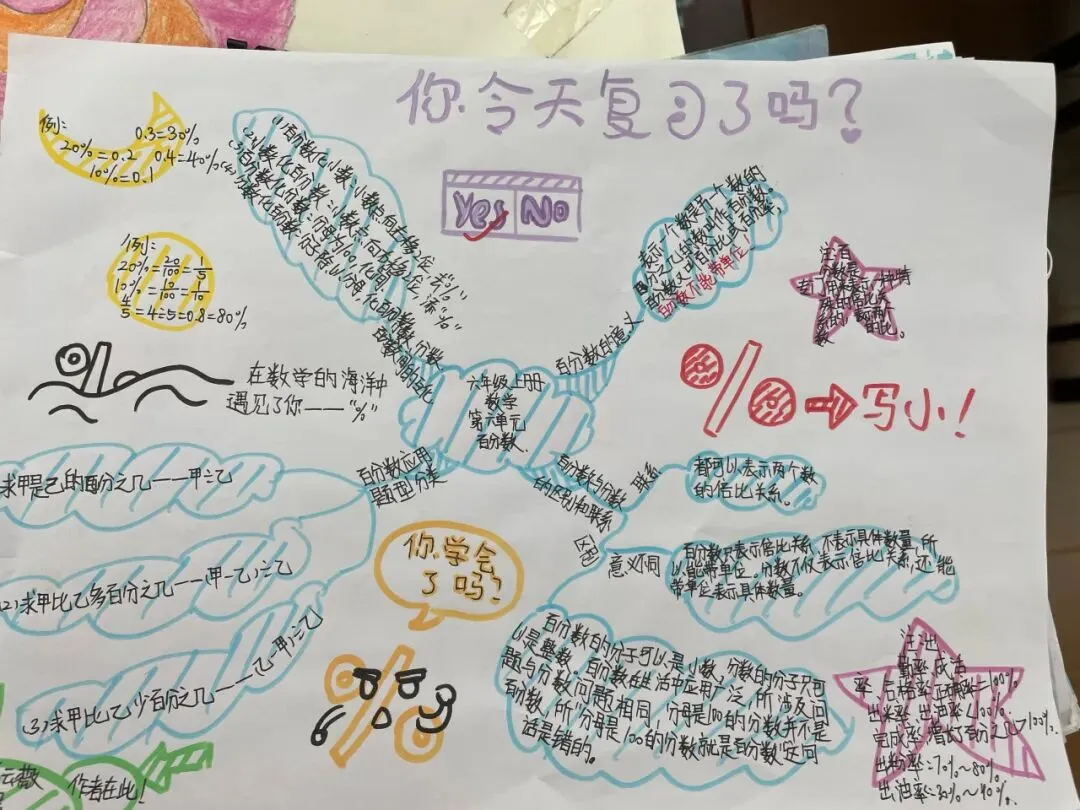 你今天复习了吗?
Yes No
例:
0.3=30%
20%=0.2 0.4=40%
10%=0.1
例:
20%=20/100=1/5
10%=10/100=1/10
4/5=4÷5=0.8=80%
(1)百分数化小数:小数点向左移两位,去"%"
(2)小数化百分数:小数点向右移两位,添"%"
(3)百分数化分数
(4)分数化百分数
百分数的意义
表示一个数是另一个数的
百分之几的数叫作百分数。
百分数又叫百分比或百分率,
百分数不能带单位。
注:百
分数是
专门用来表示一种特
殊的倍比关
系的,表示两个
数的比。
% 写小!
六年级上册
数学
第六单元
百分数
在数学的海洋中
遇见了你——"%"
百分数应用
题型分类
求甲是己的酉分之几——甲÷乙
(2)求甲比乙多百分之几——(甲-乙)÷乙
(3)求甲比乙少百分之几——(乙-甲)÷乙
百分数与分数
的区别和联系
联系
都可以表示两个数
的倍比关系。
区别
意义不同
百分数只表示倍比关系,不表示具体数量,所
以不能带单位。分数不仅表示倍比关系,还能
带单位表示具体数量。
百分数的分子可以是小数,分数的分子只可
以是整数。百分数在生活中应用广泛,所涉及问
题与分数问题相同,分母是100的分数并不是
百分数,所"分母是100的分数就是百分数"这句
话是错的。
你学会
了吗?
注:出
勤率、成活
率、合格率、正确率=100%
出米率、出油率<100%
完成率、增长百分之几>100%.
出粉率=70%~80%
出油率=30%~40%.
作者在此!